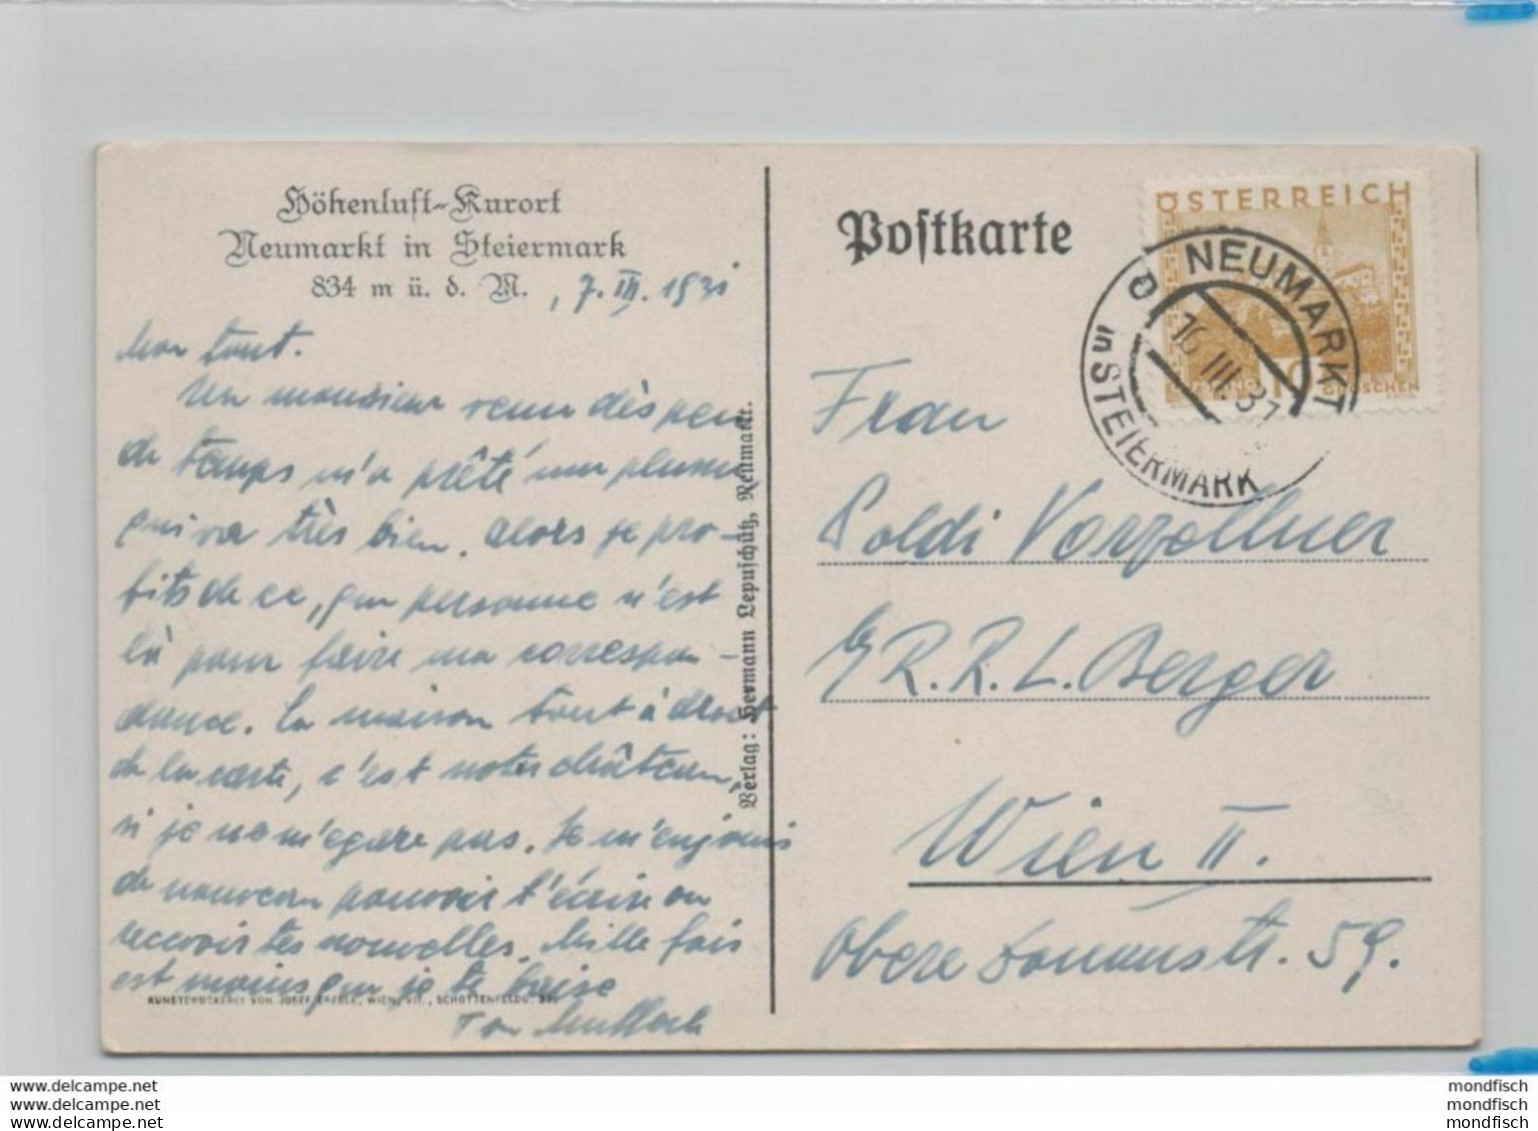 Höhenluft-Kurort
Neumarkt in Steiermark
834 m ü. d. M. , 7. III. 1931
Mon tout.
Un monsieur venu dès peu
de temps m'a prêté une plume,
qui va très bien. Alors je pro-
fits de ce, que personne n'est
là pour faire ma correspon-
dance. La maison tout à droit
de la carte, c'est notre château,
si je ne m'égare pas. Je m'enjouis
de nouveau pouvoir t'écrire ou
recevoir tes nouvelles. Mille fois
est moins que je te baise
Ton
KUNSTDRUCKEREI VON JOSEF EBERLE, WIEN, VII., SCHOTTENFELDG.
Verlag: Hermann Lepuschütz, Neumarkt.
Postkarte
ÖSTERREICH
NEUMARKT
IN STEIERMARK
16 III 31
Frau
Poldi Vorzellner
R. R. L. Berger
Wien II.
Obere Donaustr. 59.
www.delcampe.net
www.delcampe.net
www.delcampe.net
mondfisch
mondfisch
mondfisch